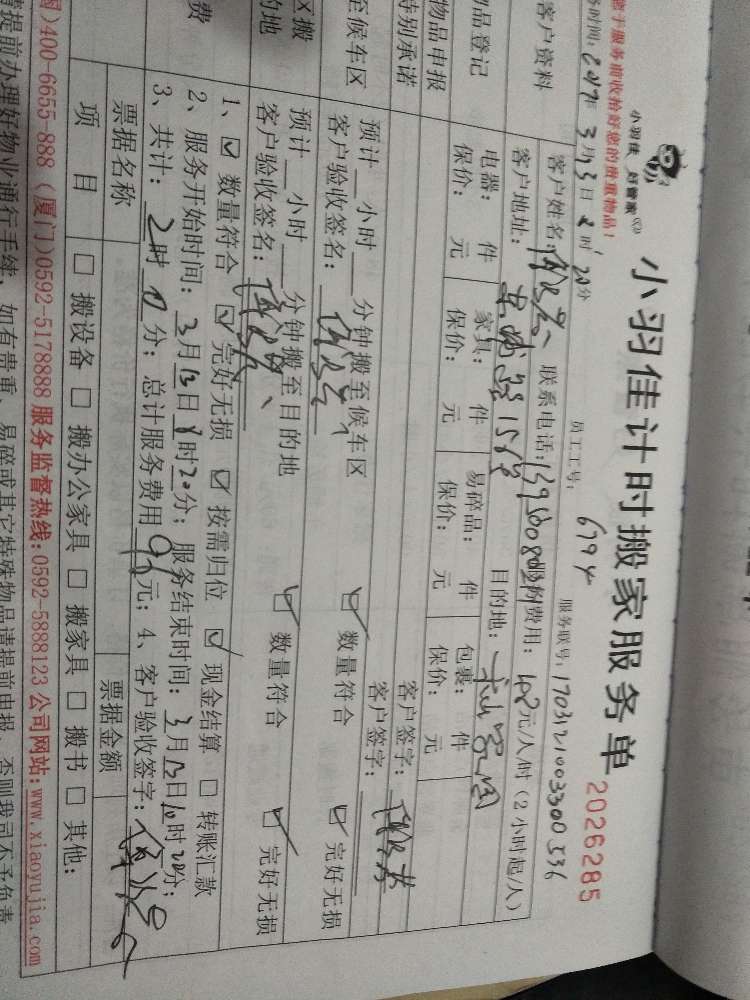 您于服务前收拾好您的贵重物品!
小羽佳 好管家
小羽佳计时搬家服务单
2026285
务时间: 2017年 3月13日 8时 20分 员工工号: 6794 服务联号: 170321003300536
客户资料 客户姓名: 联系电话: 费用: 元/人/时(2小时起/人)
客户地址: 目的地:
物品登记 电器: 件 家具: 件 易碎品: 件 包裹: 件
保价: 元 保价: 元 保价: 元 保价: 元
物品申报 客户签字:
特别承诺 客户签字:
候车区 预计 小时 分钟搬至候车区 ☑ 数量符合 ☑ 完好无损
客户验收签名:
区搬 预计 小时 分钟搬至目的地 ☑ 数量符合 ☑ 完好无损
的地 客户验收签名:
1、☑ 数量符合 ☑ 完好无损 ☑ 按需归位 ☑ 现金结算 □ 转账汇款
费 2、服务开始时间: 3月13日8时20分; 服务结束时间: 3月13日10时20分;
3、共计: 2时 分; 总计服务费用 元; 4、客户验收签字:
票据名称 票据金额
项目 □ 搬设备 □ 搬办公家具 □ 搬家具 □ 搬书 □ 其他:
400-6655-888 (厦门)0592-5178888 服务监督热线:0592-5888123 公司网站:www.xiaoyujia.com
请提前办理好物业通行手续, 如有贵重、易碎或其它特殊物品请提前申报, 否则我司不予负责